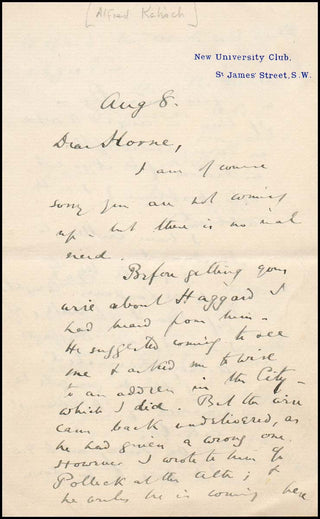 [Alfred
New University Club,
St James' Street, S.W.
Aug 8.
Dear Horne,
I am of course
sorry you are not coming
up - but there is no real
need.
Before getting your
wire about Haggard I
had heard from him -
He suggested coming to see
me & asked me to wire
to an address in the City -
which I did. But the wire
came back undelivered, as
he had given a wrong one.
However I wrote to him
Pollock at the Ath; &
he writes he is coming here